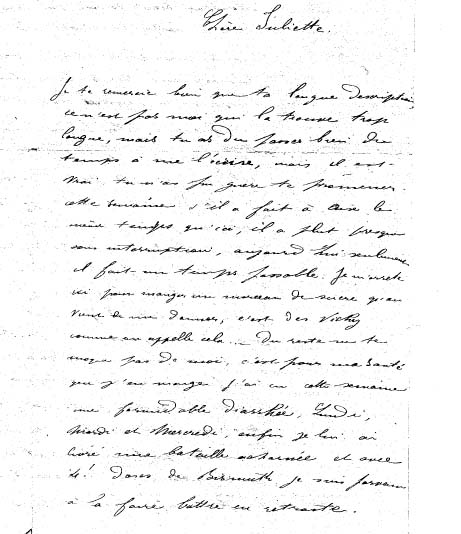 Chère Juliette.
Je te remercie bien que ta longue description,
ce n'est pas moi qui la trouve trop
longue, mais tu as dû passer bien du
temps à me l'écrire, mais il est
vrai tu n'as pu guère te promener
cette semaine s'il a fait à le
même temps qu'ici, il a plu presque
sans interruption, aujourd'hui seulement
il fait un temps passable. Je m'arrête
ici pour manger un morceau de sucre qu'on
vient de me donner, c'est des Vichy
comme on appelle cela... Du reste ne te
moque pas de moi, c'est pour ma santé
que j'en mange j'ai eu cette semaine
une formidable diarrhée, Lundi,
Mardi et Mercredi, enfin je lui ai
livré une bataille acharnée et avec
4! doses de Bismuth je suis parvenu
à la faire battre en retraite.